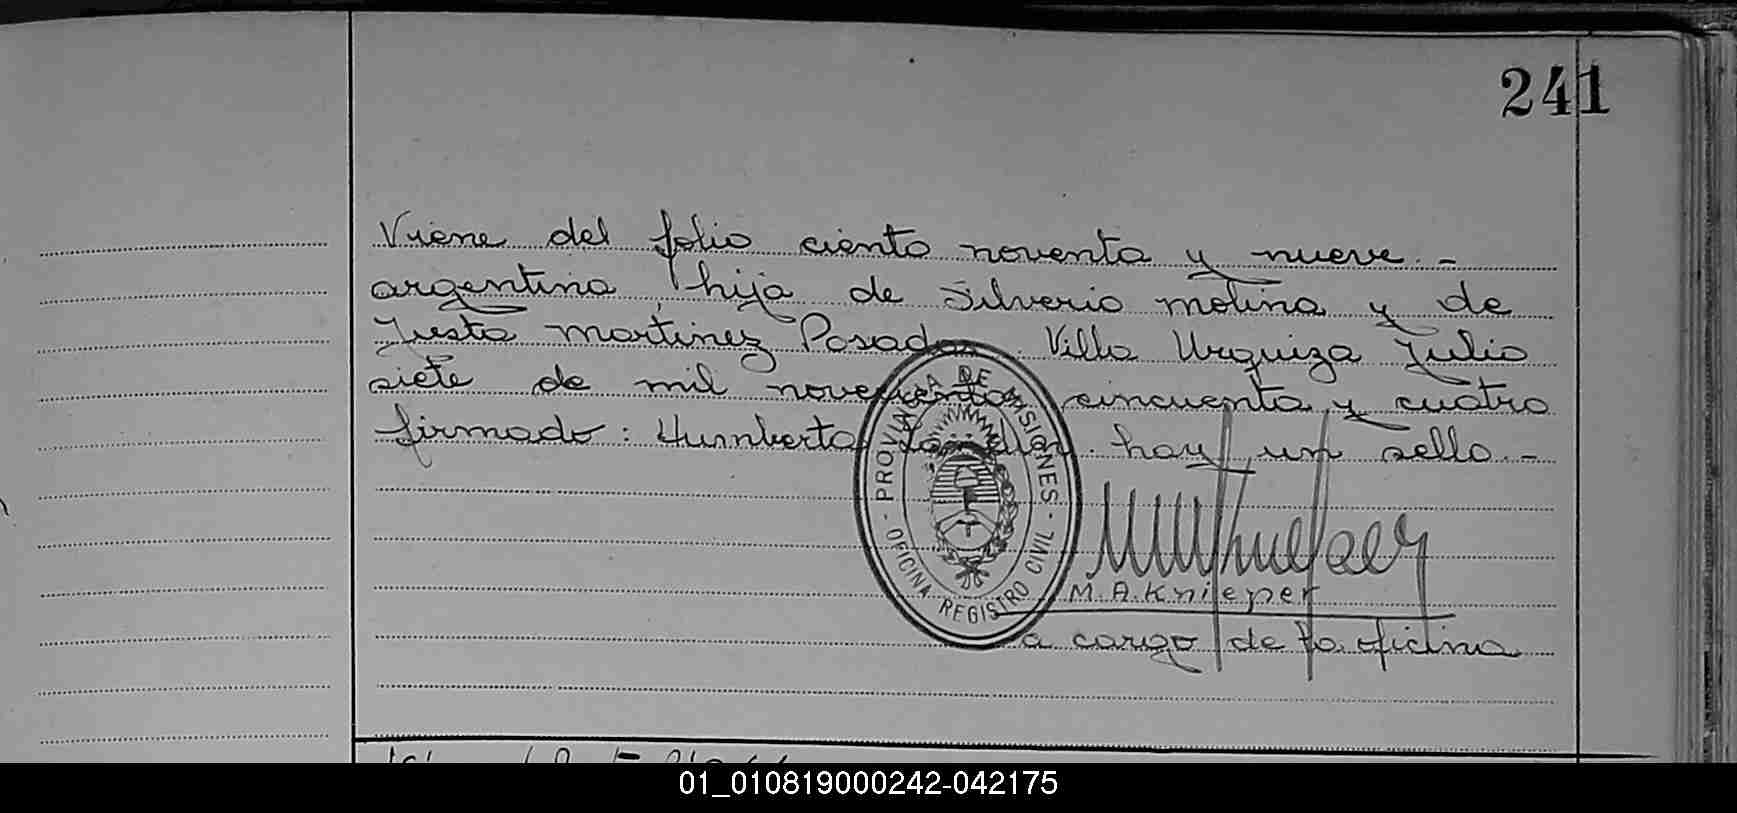 241
Viene del folio ciento noventa y nueve. -
argentina, hija de Silverio Molina y de
Justa Martinez Posadas. Villa Urquiza Julio
siete de mil novecientos cincuenta y cuatro
firmado: Humberto hay un sello. -
PROVINCIA DE MISIONES
OFICINA REGISTRO CIVIL
M. A. Knieper
a cargo de la oficina
01_010819000242-042175